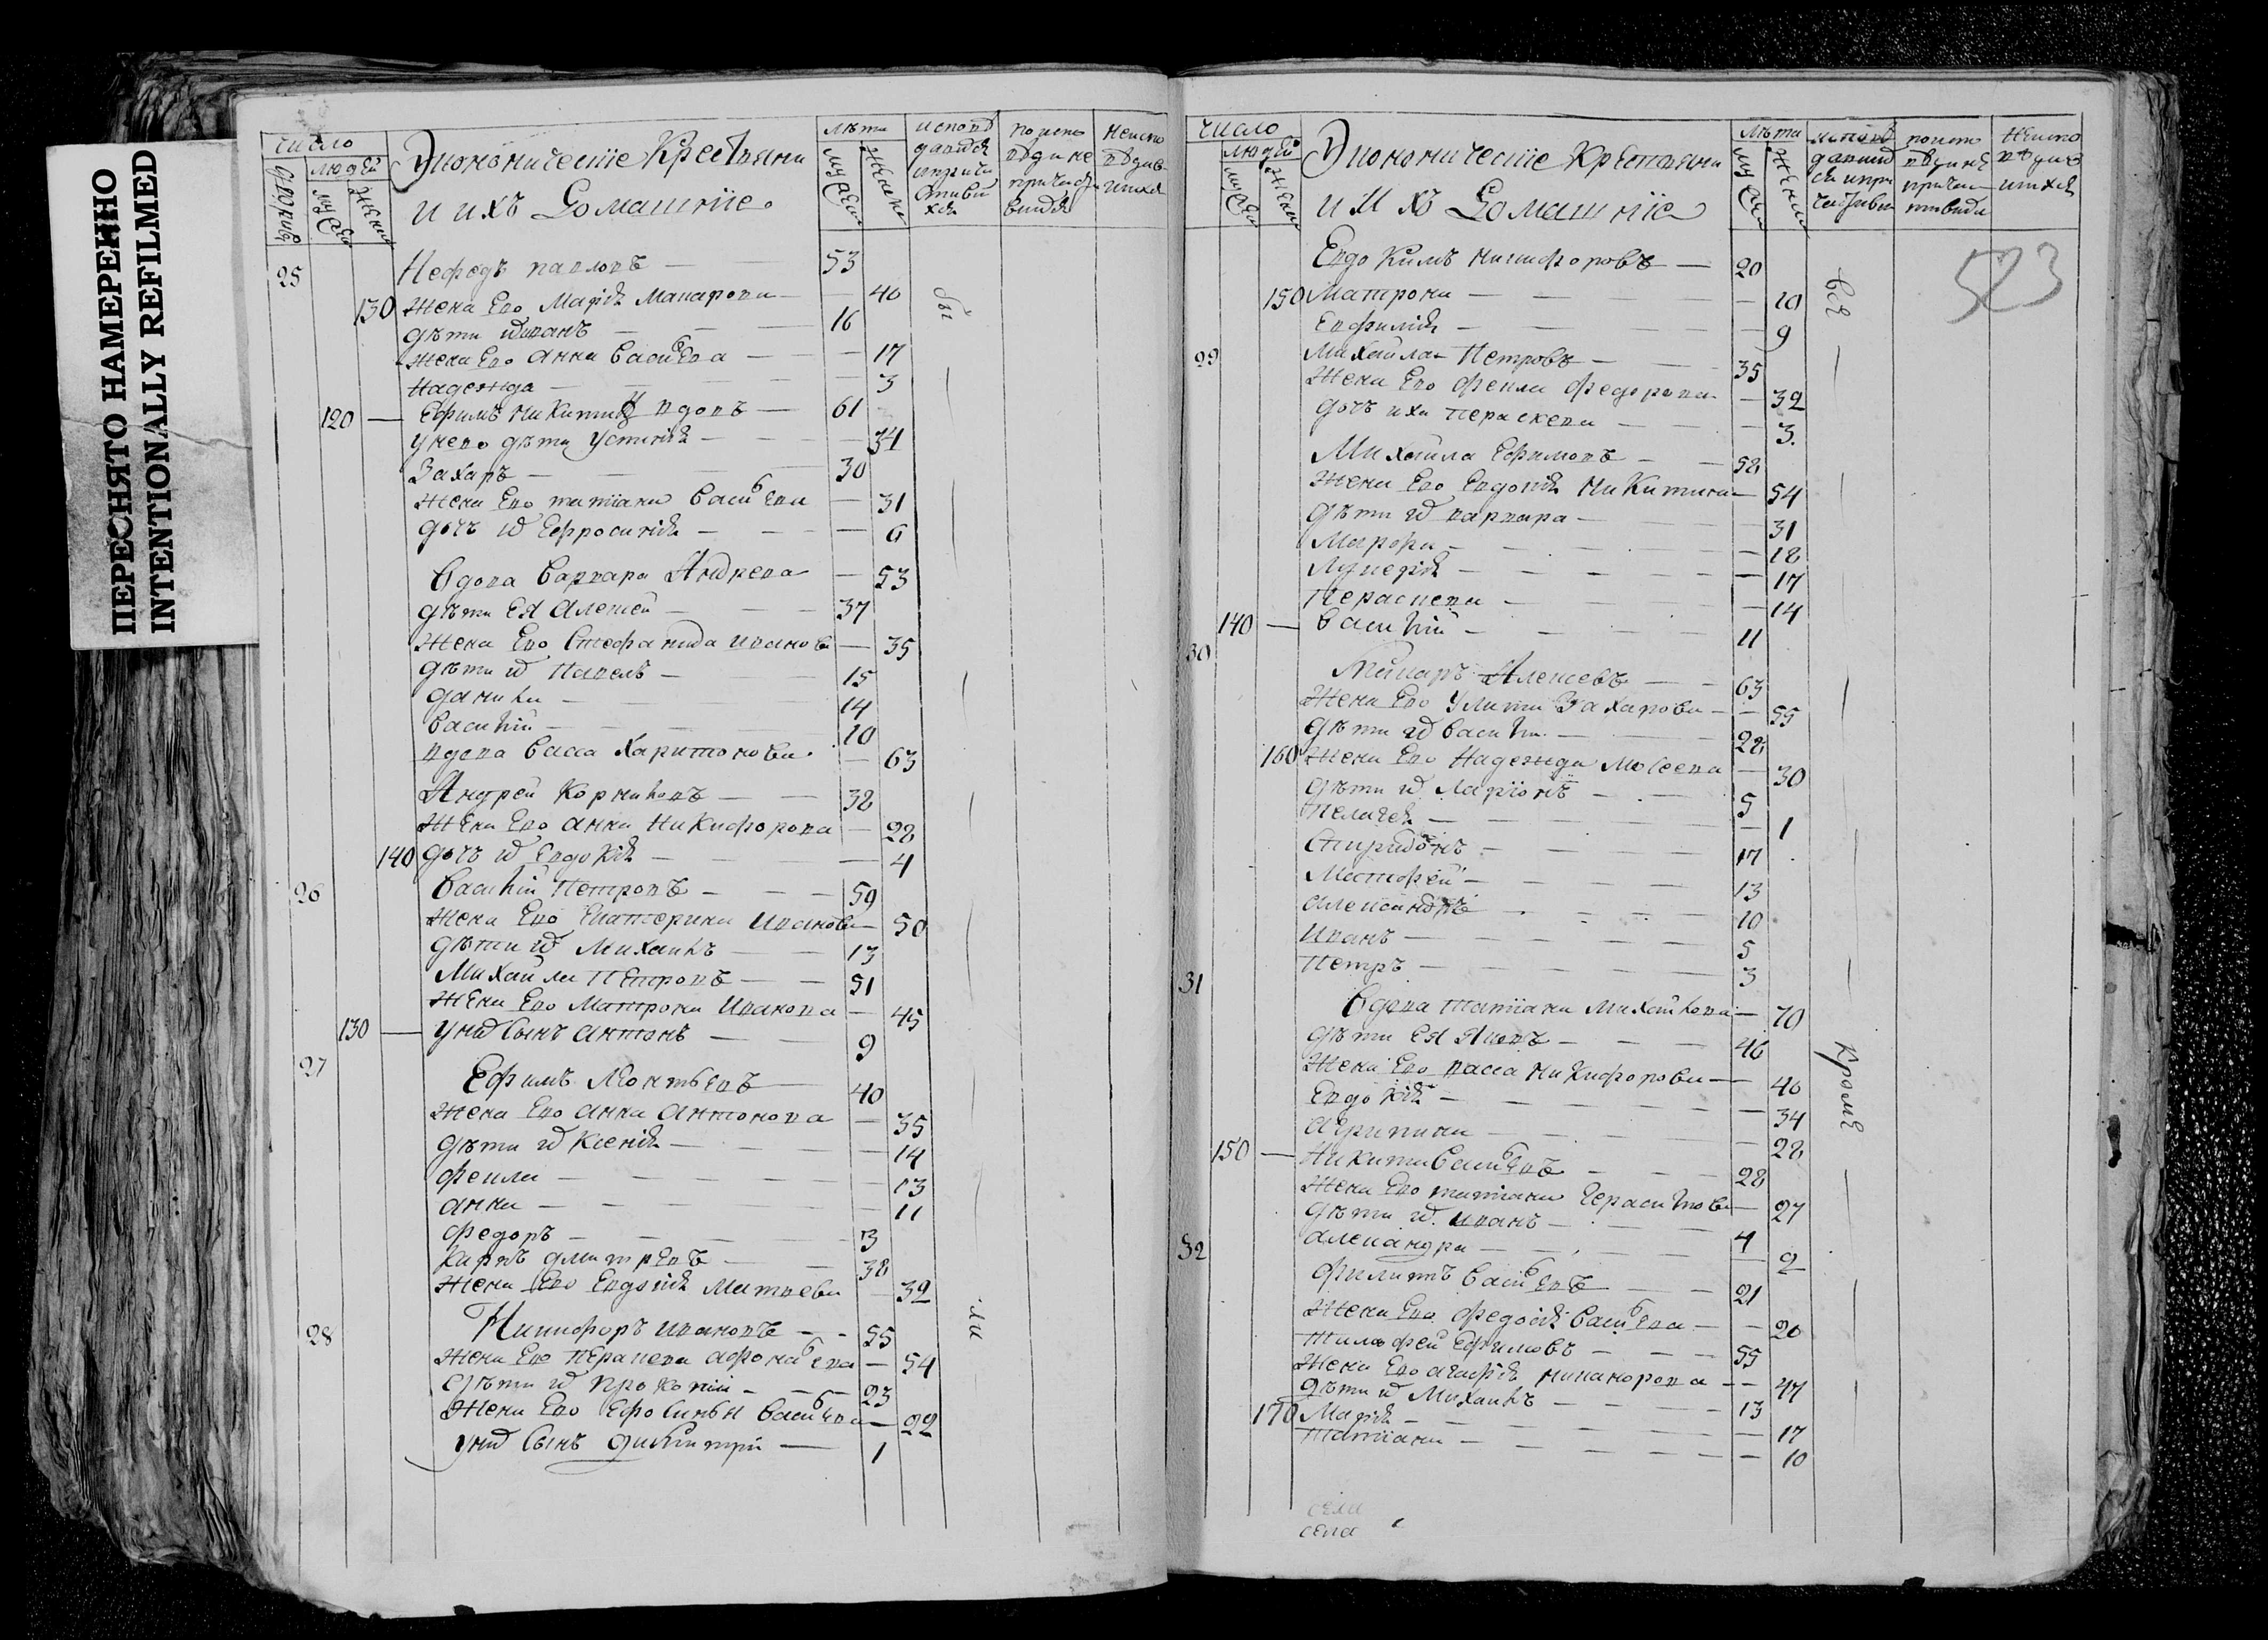 ПЕРЕСНЯТО НАМЕРЕННО
INTENTIONALLY REFILMED
число
людей
дворовъ
муж
женск
Экономическіе Крестьяни
и ихъ Домашніе
лѣта
муж
женск
25 Нефедъ павловъ 53
130 жена Ево Марія Макарова 40
дѣти иванъ 16
жена Ево анна васильева 17
надежда 3
120 Ефимъ Никитинъ вдовъ 61
у нево дѣти Устинія 34
Захаръ 30
жена Ево татіана васильева 31
дочь Ефросинія 6
вдова варвара Андрева 53
дѣти Ея алексей 37
жена Ево Стефанида иванова 35
дѣти Павелъ 15
данила 14
василій 10
вдова васса харитонова 63
Андрей Корниловъ 38
жена Ево анна Никифорова 28
140 дочь Евдокія 4
26 василій Петровъ 59
жена Ево Екатерина иванова 50
дѣти Михаилъ 13
Михайла Петровъ 51
жена Ево Матрона иванова 45
130 сынъ антонъ 9
27 Ефимъ Леонтьевъ 40
жена Ево анна антонова 35
дѣти Ксенія 14
фекла 13
анна 11
федоръ 3
карпъ дмитревъ 38
жена Ево Евдокія Матвева 32
28 Никифоръ ивановъ 55
жена Ево Пераскева афонасьева 54
дѣти прокопій 23
жена Ево Ефросинья васильева 22
сынъ димитрій 1
бы
ли
число
людей
муж
женск
Экономическіе Крестьяни
и ихъ Домашніе
лѣта
муж
женск
523
Евдокимъ никифоровъ 20
150 Матрона 10
Евфимія 9
29 Михайла Петровъ 35
жена Ево фекла федорова 32
дочь ихъ пераскева 3
Михайла Ефимовъ 58
жена Ево Евдокія никитина 54
дѣти варвара 31
Марфа 18
Лукерія 17
Пераскева 14
140 василій 11
30 Макаръ Алексевъ 63
жена Ево Улита Захарова 55
дѣти василій 28
160 жена Ево Надежда Мосеева 30
дѣти Ларіонъ 5
Пелагея 1
Спиридонъ 17
Мотофей 13
александръ 10
иванъ 5
Петръ 3
31 вдова татіана михайлова 70
дѣти Ея Яковъ 46
жена Ево васса никифорова 40
Евдокія 34
агрипина 28
150 Никита васильевъ 28
жена Ево татіана герасимова 27
дѣти иванъ 4
александра 2
32 филипъ васильевъ 21
жена Ево федосія васильева 20
тимофей Ефимовъ 55
жена Ево агафія никанорова 47
дѣти Михаилъ 13
170 Марія 17
татіана 10
всѣ
кромѣ
села
села